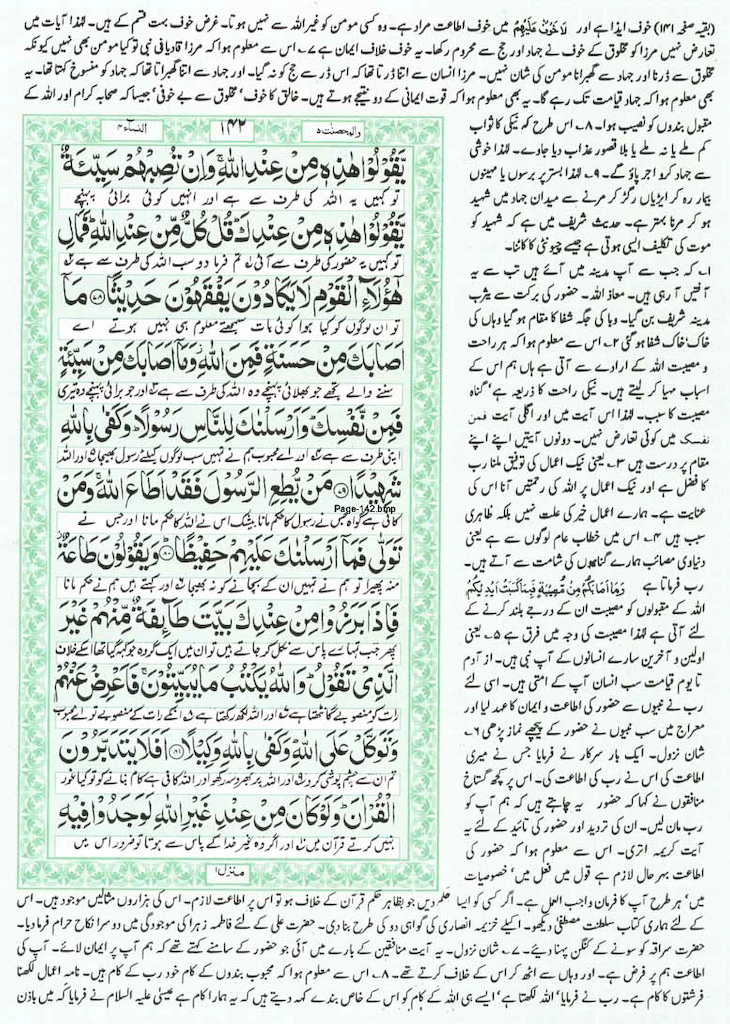 (بقیہ صفحہ ۱۴۱) خوف ایذا ہے اور لَا خَوْفٌ عَلَيْهِمْ میں خوف اطاعت مراد ہے۔ وہ کسی مومن کو غیر اللہ سے نہیں ہوتا۔ غرض خوف بہت قسم کے ہیں۔ لہٰذا آیات میں
تعارض نہیں مرزا کو مخلوق کے خوف نے جہاد اور حج سے محروم رکھا۔ یہ خوف خلاف ایمان ہے ۷۔ اس سے معلوم ہوا کہ مرزا قادیانی نبی تو کیا مومن بھی نہیں کیونکہ
مخلوق سے ڈرنا اور جہاد سے گھبرانا مومن کی شان نہیں۔ مرزا انسان سے اتنا ڈرتا تھا کہ اس ڈر سے حج کو نہ گیا۔ اور جہاد سے اتنا گھبراتا تھا کہ جہاد کو منسوخ کہتا تھا۔ یہ
بھی معلوم ہوا کہ جہاد قیامت تک رہے گا۔ یہ بھی معلوم ہوا کہ قوت ایمانی کے دو نتیجے ہوتے ہیں۔ خالق کا خوف' مخلوق سے بے خوفی' جیسا کہ صحابہ کرام اور اللہ کے
مقبول بندوں کو نصیب ہوا۔ ۸۔ اس طرح کہ نیکی کا ثواب
کم ملے یا نہ ملے یا بلا قصور عذاب دیا جاوے۔ لہٰذا خوشی
سے جہاد کرو اجر پاؤ گے۔ ۹۔ لہٰذا بستر پر برسوں یا مہینوں
بیمار رہ کر ایڑیاں رگڑ کر مرنے سے میدان جہاد میں شہید
ہو کر مرنا بہتر ہے۔ حدیث شریف میں ہے کہ شہید کو
موت کی تکلیف ایسی ہوتی ہے جیسے چیونٹی کا کاٹنا۔
۱۔ کہ جب سے آپ مدینہ میں آئے ہیں تب سے یہ
آفتیں آ رہی ہیں۔ معاذ اللہ۔ حضور کی برکت سے یثرب
مدینہ شریف بن گیا۔ وبا کی جگہ شفا کا مقام ہو گیا وہاں کی
خاک خاک شفا ہو گئی ۲۔ اس سے معلوم ہوا کہ ہر راحت
و مصیبت اللہ کے ارادے سے آتی ہے ہاں ہم اس کے
اسباب مہیا کر لیتے ہیں۔ نیکی راحت کا ذریعہ ہے' گناہ
مصیبت کا سبب۔ لہٰذا اس آیت میں اور اگلی آیت فمن
نفسک میں کوئی تعارض نہیں۔ دونوں آیتیں اپنے اپنے
مقام پر درست ہیں ۳۔ یعنی نیک اعمال کی توفیق ملنا رب
کا فضل ہے اور نیک اعمال پر اللہ کی رحمتیں آنا اس کی
عنایت ہے۔ ہمارے اعمال خیر کی علت نہیں بلکہ ظاہری
سبب ہیں ۴۔ اس میں خطاب عام لوگوں سے ہے یعنی
دنیاوی مصائب ہمارے گناہوں کی شامت سے آتے ہیں۔
رب فرماتا ہے وَمَا أَصَابَكُمْ مِنْ مُصِيبَةٍ فَبِمَا كَسَبَتْ أَيْدِيكُمْ
اللہ کے مقبولوں کو مصیبت ان کے درجے بلند کرنے کے
لئے آتی ہے لہٰذا مصیبت کی وجہ میں فرق ہے ۵۔ یعنی
اولین و آخرین سارے انسانوں کے آپ نبی ہیں۔ از آدم
تا یوم قیامت سب انسان آپ کے امتی ہیں۔ اسی لئے
رب نے نبیوں سے حضور کی اطاعت و ایمان کا عہد لیا اور
معراج میں سب نبیوں نے حضور کے پیچھے نماز پڑھی ۶۔
شان نزول۔ ایک بار سرکار نے فرمایا جس نے میری
اطاعت کی اس نے رب کی اطاعت کی۔ اس پر کچھ گستاخ
منافقوں نے کہا کہ حضور یہ چاہتے ہیں کہ ہم آپ کو
رب مان لیں۔ ان کی تردید اور حضور کی تائید کے لئے یہ
آیت کریمہ اتری۔ اس سے معلوم ہوا کہ حضور کی
اطاعت بہرحال لازم ہے قول میں فعل میں' خصوصیات
والمحصنت ۵ ۱۴۲ النساء ۴
يَّقُوْلُوْا هٰذِهٖ مِنْ عِنْدِ اللّٰهِ ۚ وَاِنْ تُصِبْهُمْ سَيِّئَةٌ
تو کہیں یہ اللہ کی طرف سے ہے اور انہیں کوئی برائی پہنچے
يَّقُوْلُوْا هٰذِهٖ مِنْ عِنْدِكَ ۚ قُلْ كُلٌّ مِّنْ عِنْدِ اللّٰهِ ۖ فَمَالِ
تو کہیں یہ حضور کی طرف سے آئی تم فرما دو سب اللہ کی طرف سے ہے
هٰٓؤُلَآءِ الْقَوْمِ لَا يَكَادُوْنَ يَفْقَهُوْنَ حَدِيْثًا ۷۸ مَآ
تو ان لوگوں کو کیا ہوا کوئی بات سمجھتے معلوم ہی نہیں ہوتے اے
اَصَابَكَ مِنْ حَسَنَةٍ فَمِنَ اللّٰهِ ۖ وَمَآ اَصَابَكَ مِنْ سَيِّئَةٍ
سننے والے تجھے جو بھلائی پہنچے وہ اللہ کی طرف سے ہے اور جو برائی پہنچے وہ تیری
فَمِنْ نَّفْسِكَ ۚ وَاَرْسَلْنٰكَ لِلنَّاسِ رَسُوْلًا ۚ وَكَفٰى بِاللّٰهِ
اپنی طرف سے ہے اور اے محبوب ہم نے تمہیں سب لوگوں کیلئے رسول بھیجا اور اللہ
شَهِيْدًا ۷۹ مَنْ يُّطِعِ الرَّسُوْلَ فَقَدْ اَطَاعَ اللّٰهَ ۚ وَمَنْ
Page-142.bmp
کافی ہے گواہ جس نے رسول کا حکم مانا بیشک اس نے اللہ کا حکم مانا اور جس نے
تَوَلّٰى فَمَآ اَرْسَلْنٰكَ عَلَيْهِمْ حَفِيْظًا ۸۰ وَيَقُوْلُوْنَ طَاعَةٌ
منہ پھیرا تو ہم نے تمہیں ان کے بچانے کو نہ بھیجا اور کہتے ہیں ہم نے حکم مانا
فَاِذَا بَرَزُوْا مِنْ عِنْدِكَ بَيَّتَ طَآئِفَةٌ مِّنْهُمْ غَيْرَ
پھر جب تمہارے پاس سے نکل کر جاتے ہیں تو ان میں ایک گروہ جو کہہ گیا تھا اسکے خلاف
الَّذِيْ تَقُوْلُ ۖ وَاللّٰهُ يَكْتُبُ مَا يُبَيِّتُوْنَ ۚ فَاَعْرِضْ عَنْهُمْ
رات کو منصوبے گانٹھتا ہے اور اللہ لکھ رکھتا ہے انکے رات کے منصوبے تو اے محبوب
وَتَوَكَّلْ عَلَى اللّٰهِ ۚ وَكَفٰى بِاللّٰهِ وَكِيْلًا ۸۱ اَفَلَا يَتَدَبَّرُوْنَ
تم ان سے چشم پوشی کرو اور اللہ پر بھروسہ رکھو اور اللہ کافی ہے کام بنانے کو تو کیا غور
الْقُرْاٰنَ ۚ وَلَوْ كَانَ مِنْ عِنْدِ غَيْرِ اللّٰهِ لَوَجَدُوْا فِيْهِ
نہیں کرتے قرآن میں اور اگر وہ غیر خدا کے پاس سے ہوتا تو ضرور اس میں
منزل ۱
میں' ہر طرح آپ کا فرمان واجب العمل ہے۔ اگر کسی کو ایسا حکم دیں جو بظاہر حکم قرآن کے خلاف ہو تو اس پر اطاعت لازم۔ اس کی ہزاروں مثالیں موجود ہیں۔ اس
کے لئے ہماری کتاب سلطنت مصطفیٰ دیکھو۔ اکیلے خزیمہ انصاری کی گواہی دو کی طرح بنا دی۔ حضرت علی کے لئے فاطمہ زہرا کی موجودگی میں دوسرا نکاح حرام فرما دیا۔
حضرت سراقہ کو سونے کے کنگن پہنا دیئے۔ ۷۔ شان نزول۔ یہ آیت منافقین کے بارے میں آئی جو حضور کے سامنے کہتے تھے کہ ہم آپ پر ایمان لائے۔ آپ کی
اطاعت ہم پر فرض ہے۔ اور وہاں سے اٹھ کر اس کے خلاف کرتے تھے۔ ۸۔ اس سے معلوم ہوا کہ محبوب بندوں کے کام خود رب کے کام ہیں۔ نامہ اعمال لکھنا
فرشتوں کا کام ہے۔ رب نے فرمایا' اللہ لکھتا ہے' ایسے ہی اللہ کے کام کو اس کے خاص بندے کہہ دیتے ہیں کہ یہ ہمارا کام ہے عیسیٰ علیہ السلام نے فرمایا کہ میں باذن